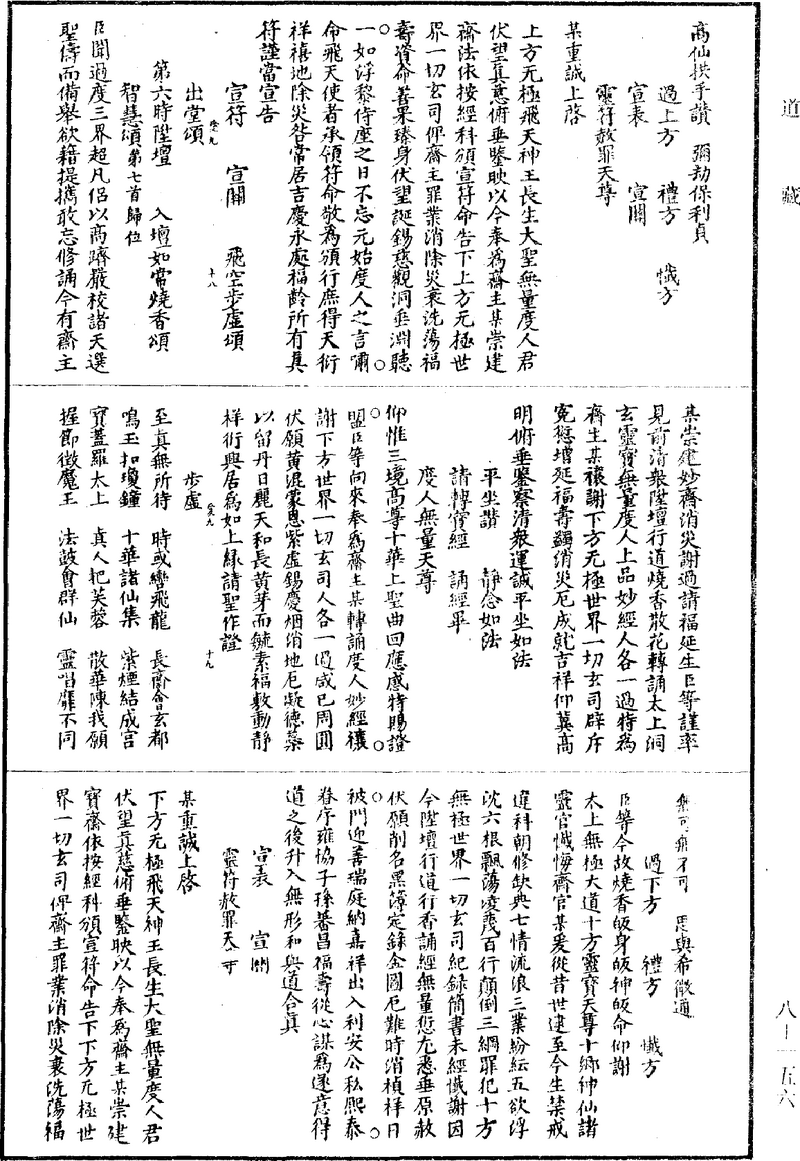 道藏
高仙拱手讚　彌劫保利貞
過上方　禮方　懺方
宣表　宣關
靈符赦罪天尊
某重誠上啓
上方无極飛天神王長生大聖無量度人君
伏望真慈俯垂鑒映以今奉爲齋主某崇建
齋法依按經科頒宣符命告下上方无極世
界一切玄司俾齋主罪業消除災衰洗蕩福
壽資命善果臻身伏望誕錫慈觀洞垂淵聽
一如浮黎侍座之日不忘元始度人之言爾
命飛天使者承領符命敬爲頒行庶得天衍
祥禧地除災咎常居吉慶永處福齡所有真
符謹當宣告
宣符　宣關　飛空步虛頌
出堂頌
十八
第六時陞壇　入壇如常燒香頌
智慧頌第七首歸位
臣聞過度三界超凡侶以高躋嚴校諸天選
聖儔而備舉欲籍提攜敢忘修誦今有齋主
某崇建妙齋消災謝過請福延生臣等謹率
見前清衆陞壇行道燒香散花轉誦太上洞
玄靈寶無量度人上品妙經人各一過特爲
齋主某禳謝下方无極世界一切玄司辟斥
冤愆增延福壽蠲消災厄成就吉祥仰冀高
明俯垂鑒察清衆運誠平坐如法
平坐讚　靜念如法
請轉寶經　誦經畢
度人無量天尊
仰惟三境高尊十華上聖曲回應感特賜證
盟臣等向來奉爲齋主某轉誦度人妙經禳
謝下方世界一切玄司人各一過咸已周圓
伏願黄混蒙恩紫虛錫慶烟消地厄凝德藁
以留丹日麗天和長黄芽而毓素福敷動靜
祥衍興居爲如上緣請聖作證
步虛
十九
至真無所待　時或轡飛龍　長齋會玄都
鳴玉扣瓊鐘　十華諸仙集　紫煙結成宮
寶蓋羅太上　真人把芙蓉　散華陳我願
握節徵魔王　法鼓會群仙　靈唱靡不同
無可無不可　思與希微通
過下方　禮方　懺方
臣等今故燒香皈身皈神皈命仰謝
太上無極大道十方靈寶天尊十鄉神仙諸
靈官懺悔齋官某爰從昔世逮至今生禁戒
違科朝修缺典七情流浪三業紛紜五欲浮
沈六根飄蕩凌蔑百行顛倒三綱罪犯十方
無極世界一切玄司紀録簡書未經懺謝因
今陞壇行道行香誦經無量愆尤悉垂原赦
伏願削名黑簿定録金圖厄難時消禎祥日
被門迎善瑞庭納嘉祥出入利安公私熙泰
眷序雍協子孫蕃昌福壽從心謀爲遂意得
道之後升入無形和與道合真
宣表　宣關
靈符赦罪天尊
某重誠上啓
下方无極飛天神王長生大聖無量度人君
伏望真慈俯垂鑒映以今奉爲齋主某崇建
寶齋依按經科頒宣符命告下下方无極世
界一切玄司俾齋主罪業消除災衰洗蕩福
八—一五六